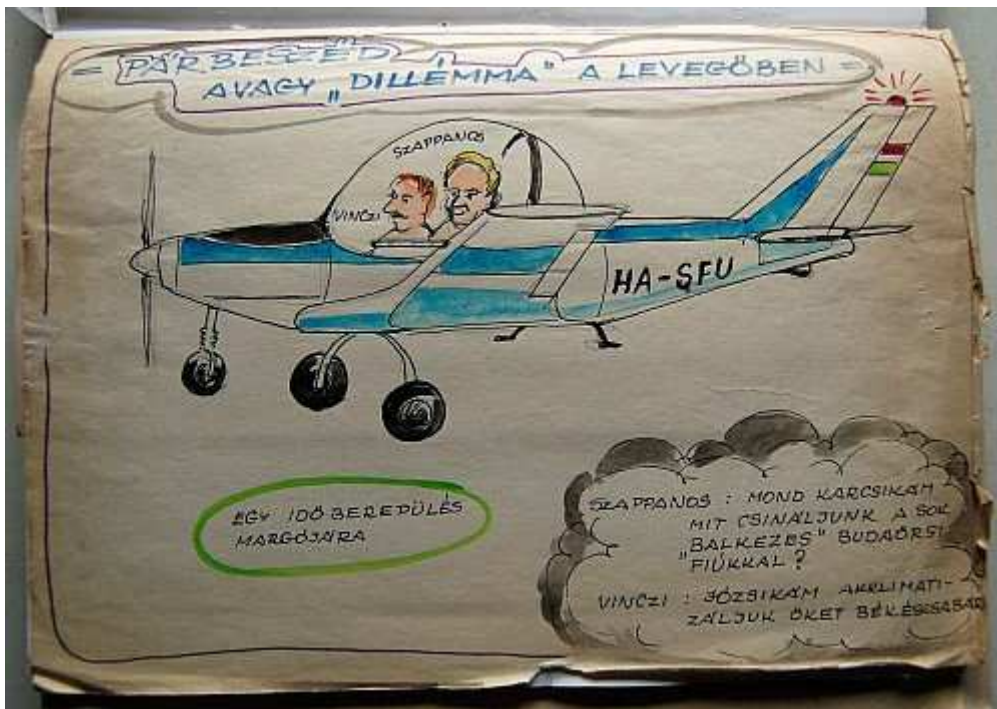 = PÁRBESZÉD
AVAGY „DILLEMMA" A LEVEGŐBEN =
SZAPPANOS
VINCZI
HA-SFU
EGY IDŐ BEREPÜLÉS
MARGÓJÁRA
SZAPPANOS : MOND KARCSIKÁM
MIT CSINÁLJUNK A SOK
„BALKEZES" BUDAÖRSI
FIÚKKAL ?
VINCZI : JÓZSIKÁM AKKLIMATI-
ZÁLJUK ŐKET BÉKÉSCSABÁN